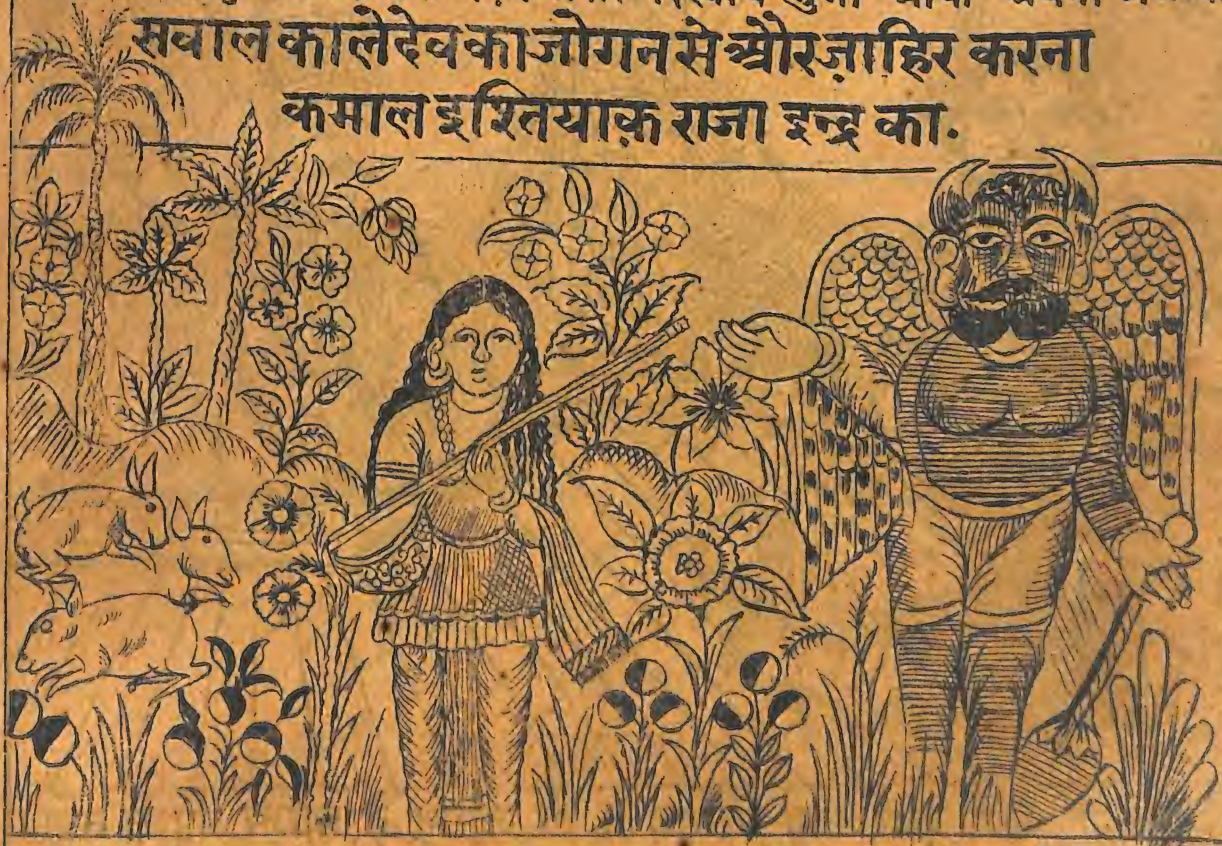 सवाल कालेदेव का जोगन से और ज़ाहिर करना
कमाल इश्तियाक़ राजा इन्द्र का.